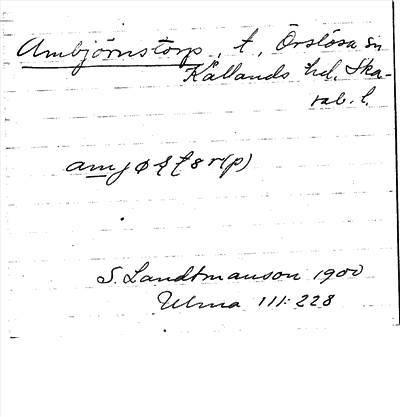 Ambjörnstorp, t., Örslösa sn
Kållands hd, Ska-
rab. l.
S. Landtmanson 1900
Ulma 111:228